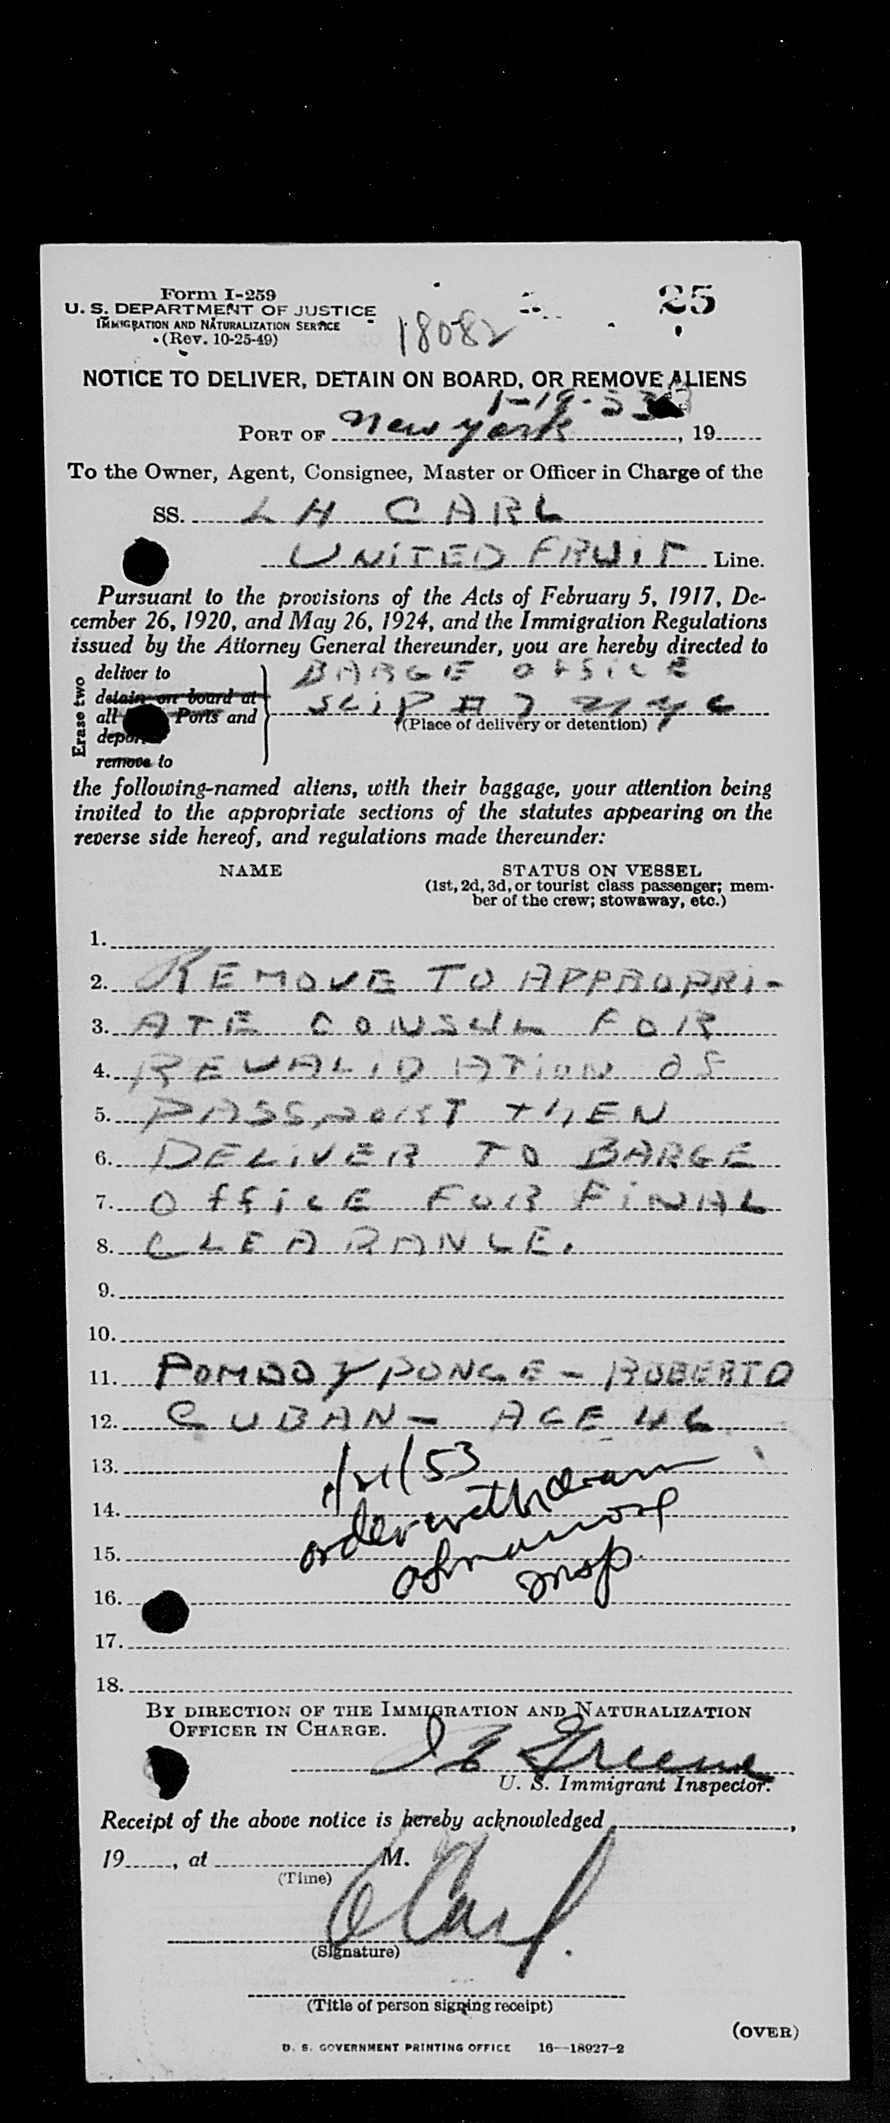 Form I-259
25
U. S. DEPARTMENT OF JUSTICE
IMMIGRATION AND NATURALIZATION SERVICE
(Rev. 10-25-49)
18082
NOTICE TO DELIVER, DETAIN ON BOARD, OR REMOVE ALIENS
1-19-53
PORT OF New York, 19
To the Owner, Agent, Consignee, Master or Officer in Charge of the
SS. L H CARL
UNITED FRUIT Line.
Pursuant to the provisions of the Acts of February 5, 1917, De-
cember 26, 1920, and May 26, 1924, and the Immigration Regulations
issued by the Attorney General thereunder, you are hereby directed to
Erase two
deliver to
detain on board at
all Ports and
remove to
BARGE OFFICE
SLIP # 7 NYC
(Place of delivery or detention)
the following-named aliens, with their baggage, your attention being
invited to the appropriate sections of the statutes appearing on the
reverse side hereof, and regulations made thereunder:
NAME
STATUS ON VESSEL
(1st, 2d, 3d, or tourist class passenger; mem-
ber of the crew; stowaway, etc.)
1.
2. REMOVE TO APPROPRI-
3. ATE CONSUL FOR
4. REVALIDATION OF
5. PASSPORT THEN
6. DELIVER TO BARGE
7. OFFICE FOR FINAL
8. CLEARANCE.
9.
10.
11. POMBO Y PONCE - ROBERTO
12. CUBAN - AGE 46
13. 1/21/53
14. order withdrawn
15. insp.
16.
17.
18.
BY DIRECTION OF THE IMMIGRATION AND NATURALIZATION
OFFICER IN CHARGE.
Greene
U. S. Immigrant Inspector.
Receipt of the above notice is hereby acknowledged,
19, at M.
(Time)
Carl
(Signature)
(Title of person signing receipt)
(OVER)
U. S. GOVERNMENT PRINTING OFFICE 16—18927-2